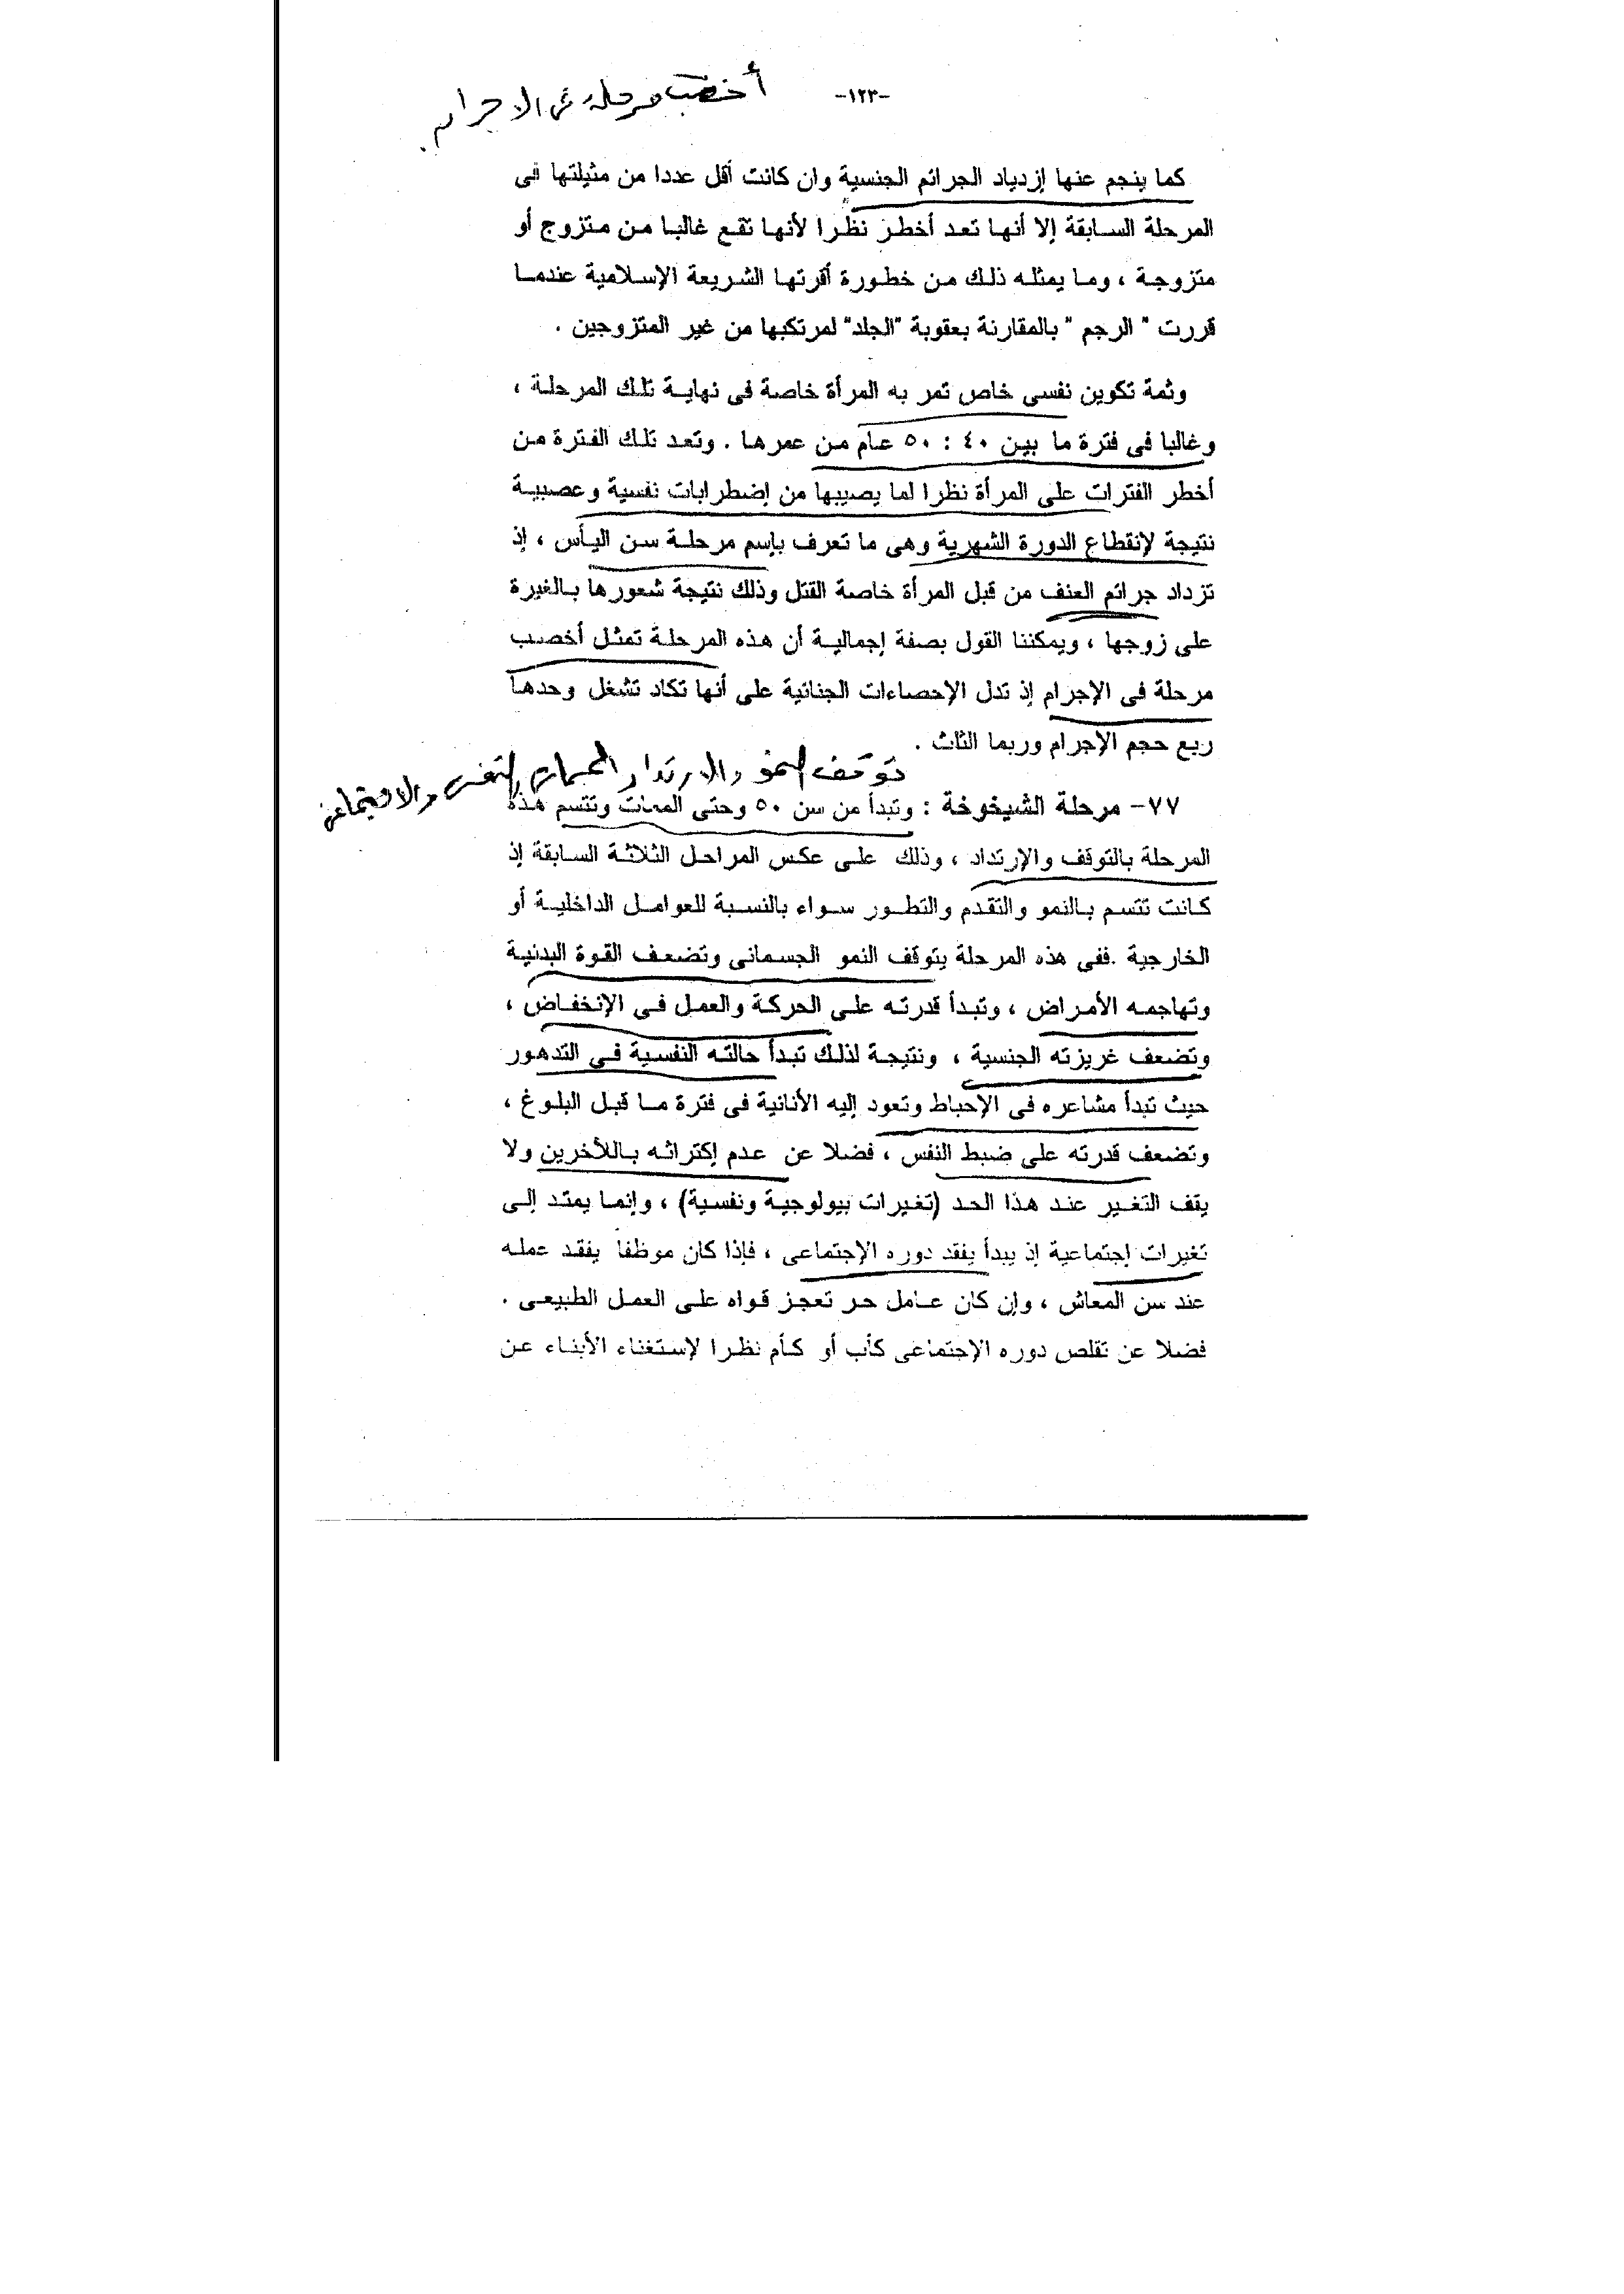 -١٢٣-
أخصب مرحلة فى الاجرام.
كما ينجم عنها إزدياد الجرائم الجنسية وان كانت أقل عددا من مثيلتها فى
المرحلة السابقة إلا أنها تعد أخطر نظرا لأنها تقع غالبا من متزوج أو
متزوجة ، وما يمثله ذلك من خطورة أقرتها الشريعة الإسلامية عندما
قررت " الرجم " بالمقارنة بعقوبة "الجلد" لمرتكبها من غير المتزوجين .
وثمة تكوين نفسى خاص تمر به المرأة خاصة فى نهاية تلك المرحلة ،
وغالبا فى فترة ما بين ٤٠ : ٥٠ عام من عمرها . وتعد تلك الفترة من
أخطر الفترات على المرأة نظرا لما يصيبها من إضطرابات نفسية وعصبية
نتيجة لإنقطاع الدورة الشهرية وهى ما تعرف بإسم مرحلة سن اليأس ، إذ
تزداد جرائم العنف من قبل المرأة خاصة القتل وذلك نتيجة شعورها بالغيرة
على زوجها ، ويمكننا القول بصفة إجمالية أن هذه المرحلة تمثل أخصب
مرحلة فى الإجرام إذ تدل الإحصاءات الجنائية على أنها تكاد تشغل وحدها
ربع حجم الإجرام وربما الثلث .
توقف النمو والارتداد الجسمانى والنفسى والاجتماعى
٧٧- مرحلة الشيخوخة : وتبدأ من سن ٥٠ وحتى الممات وتتسم هذه
المرحلة بالتوقف والإرتداد ، وذلك على عكس المراحل الثلاثة السابقة إذ
كانت تتسم بالنمو والتقدم والتطور سواء بالنسبة للعوامل الداخلية أو
الخارجية .ففى هذه المرحلة يتوقف النمو الجسمانى وتضعف القوة البدنية
وتهاجمه الأمراض ، وتبدأ قدرته على الحركة والعمل فى الإنخفاض ،
وتضعف غريزته الجنسية ، ونتيجة لذلك تبدأ حالته النفسية فى التدهور
حيث تبدأ مشاعره فى الإحباط وتعود إليه الأنانية فى فترة ما قبل البلوغ ،
وتضعف قدرته على ضبط النفس ، فضلا عن عدم إكتراثه باللأخرين ولا
يقف التغير عند هذا الحد (تغيرات بيولوجية ونفسية) ، وإنما يمتد إلى
تغيرات إجتماعية إذ يبدأ يفقد دوره الإجتماعى ، فإذا كان موظفا يفقد عمله
عند سن المعاش ، وإن كان عامل حر تعجز قواه على العمل الطبيعى .
فضلا عن تقلص دوره الإجتماعى كأب أو كأم نظرا لإستغناء الأبناء عن